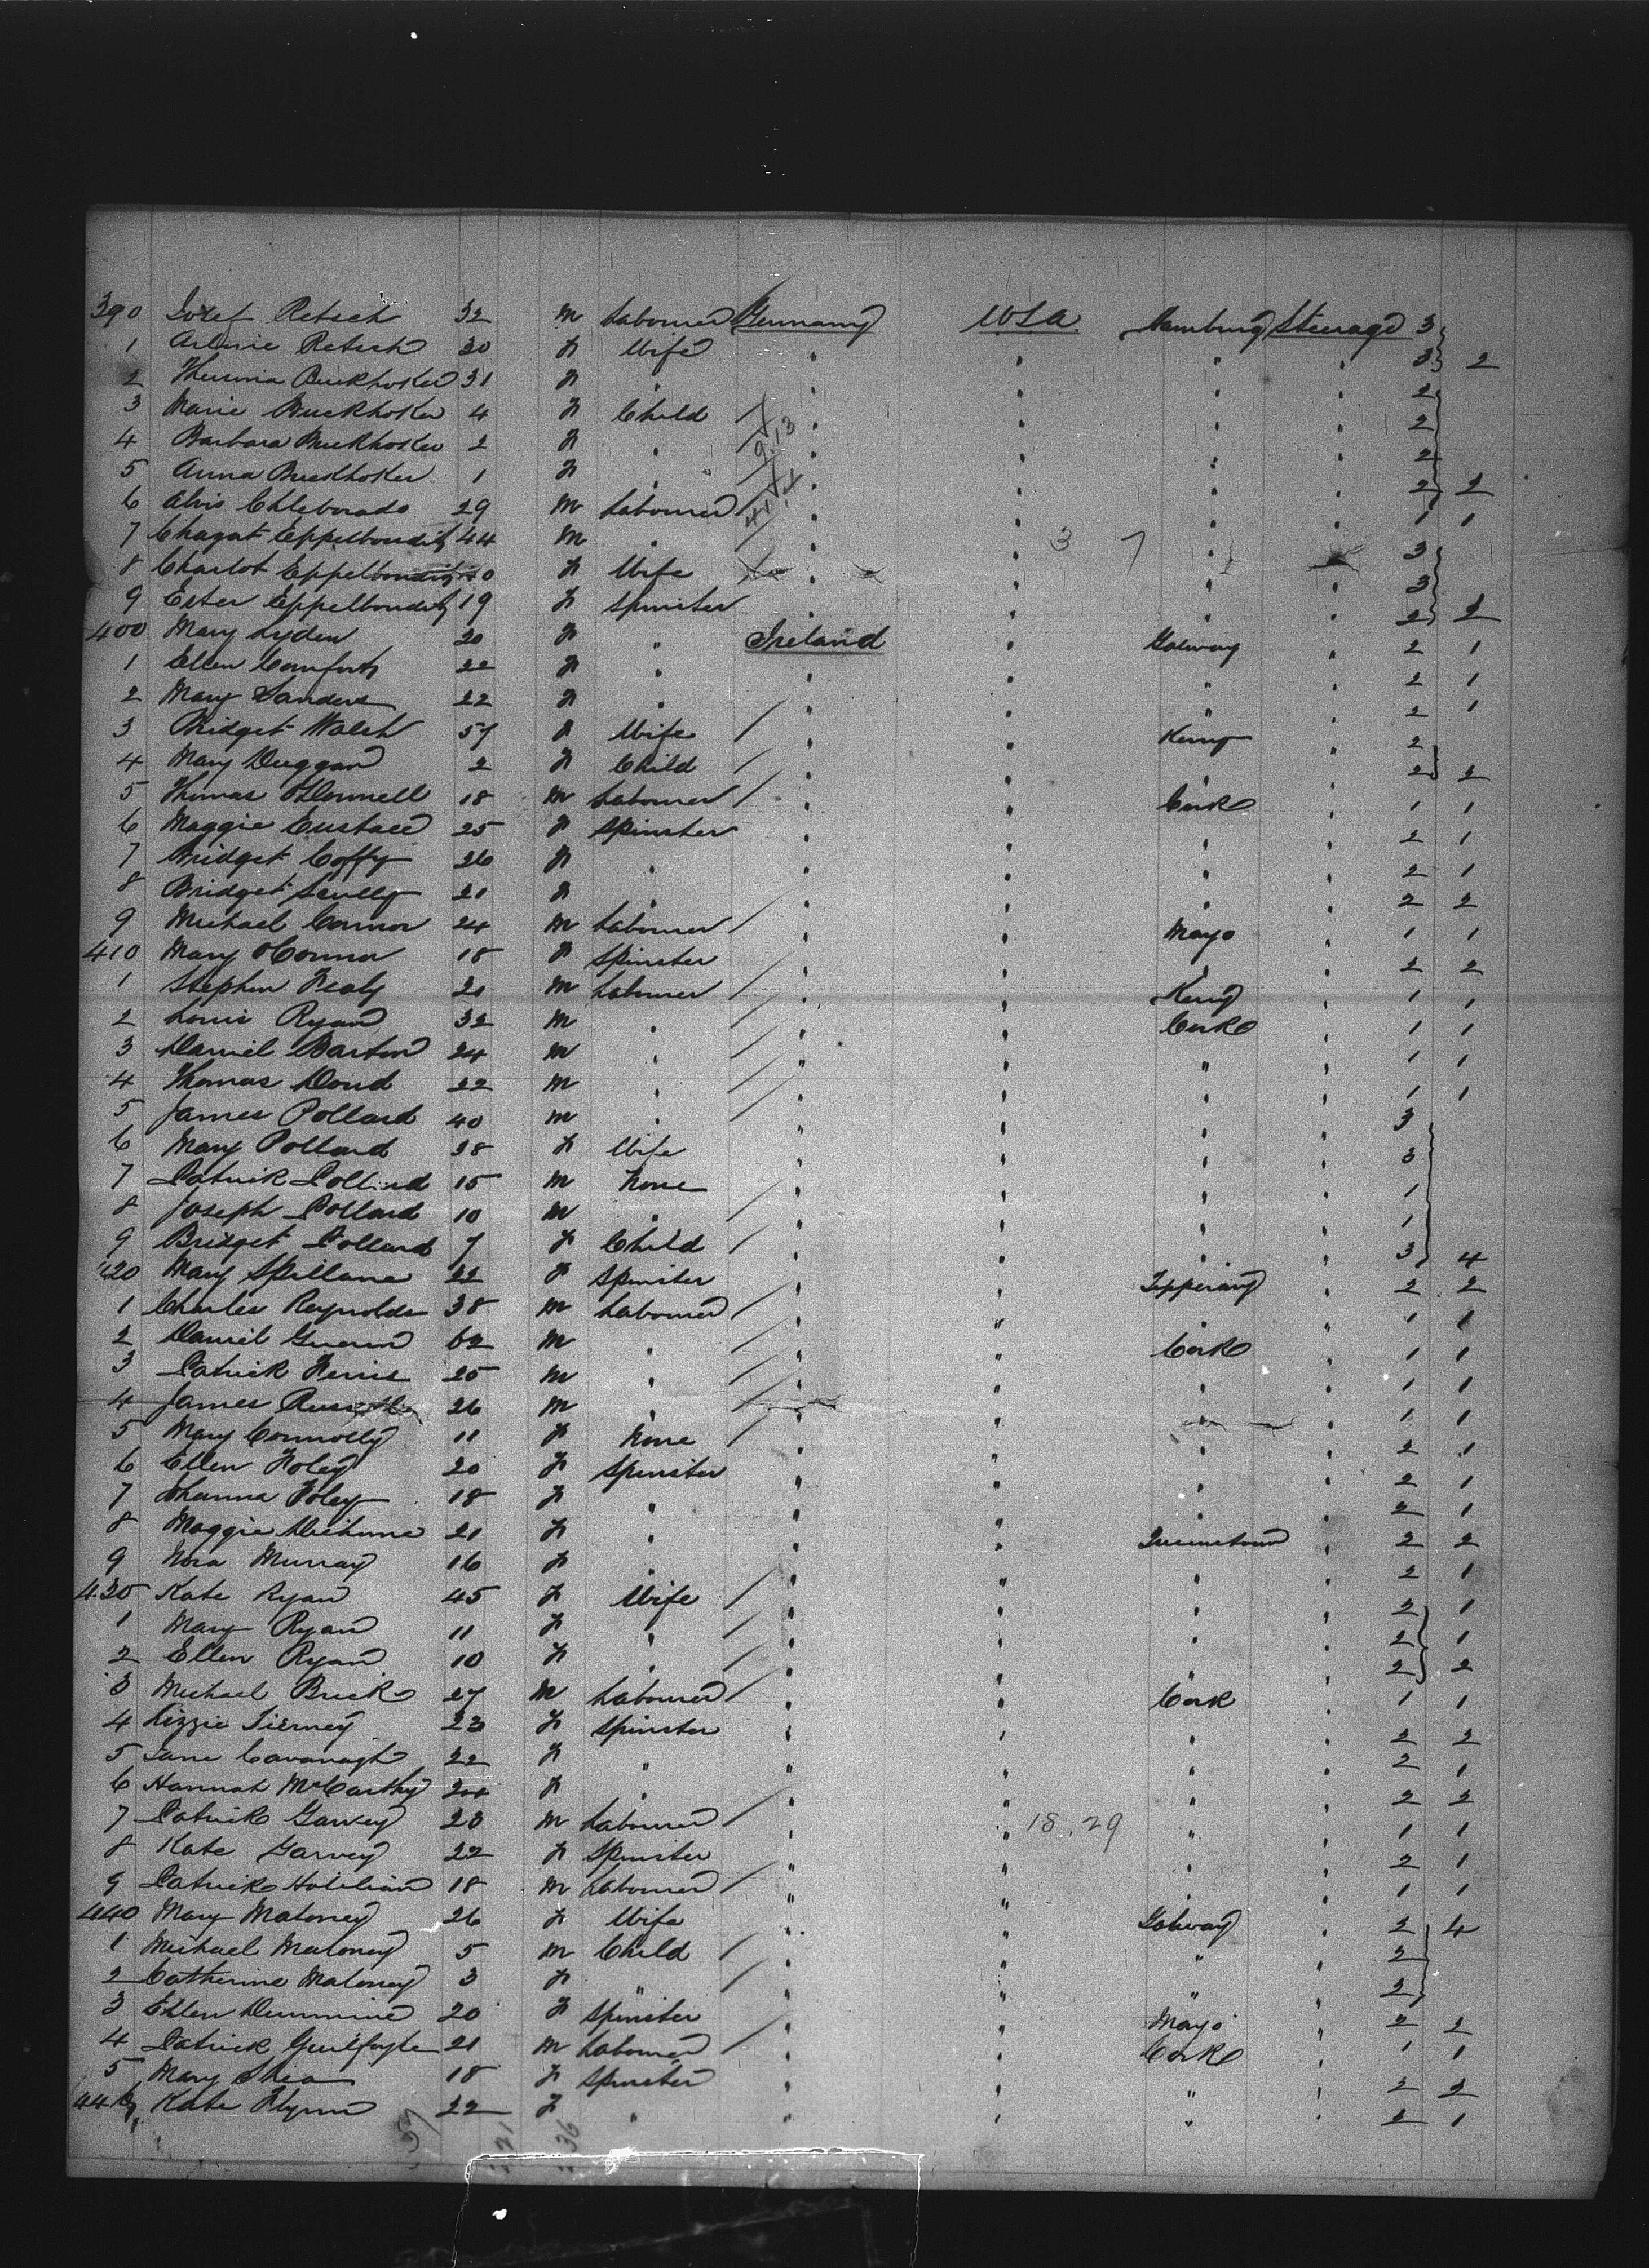 390 Josef Retsch 32 m Labourer Germany USA Hamburg Steerage 3
1 Retsch 30 f Wife " " " " 3 2
2 31 f " " " " " 2
3 Marie Buckhoker 4 f Child / " " " " 2
4 Barbara Buckhoker 2 f " / " " " " 2
5 Anna Buckhoker 1 f " / " " " " 2 2
6 Alois Chleborado 29 m Labourer / " " " " 1 1
7 Chagat 44 m " / " " " " 3
8 Charlot f Wife " " " " 3
9 Ester 19 f Spinster " " " " 2 2
400 Mary Lyden 20 f " Ireland " Galway " 2 1
1 Ellen 22 f " " " " " 2 1
2 Mary Sanders 22 f " " " " " 2 1
3 Bridget Walsh 57 f Wife / " " Kerry " 2
4 Mary Duggan 2 f Child / " " " " 2 2
5 Thomas O'Donnell 18 m Labourer / " " Cork " 1 1
6 Maggie Eustace 25 f Spinster " " " " 2 1
7 Bridget Coffy 20 f " " " " " 2 1
8 Bridget Scully 21 f " " " " " 2 2
9 Michael Connor 24 m Labourer / " " Mayo " 1 1
410 Mary O'Connor 18 f Spinster " " " " 2 2
1 Stephen Healy 21 m Labourer / " " Kerry " 1 1
2 Louis Ryan 32 m " / " " Cork " 1 1
3 Daniel Barton 24 m " / " " " " 1 1
4 Thomas Doud 22 m " / " " " " 1 1
5 James Pollard 40 m " / " " " " 3
6 Mary Pollard 38 f Wife " " " " 3
7 Patrick Pollard 15 m None / " " " " 1
8 Joseph Pollard 10 m " / " " " " 1
9 Bridget Pollard 7 f Child / " " " " 3 4
420 Mary Spillane 22 f Spinster " " Tipperary " 2 2
1 Charles Reynolds 38 m Labourer / " " " " 1 1
2 Daniel 62 m " / " " Cork " 1 1
3 Patrick Ferris 25 m " / " " " " 1 1
4 James 26 m " / " " " " 1 1
5 Mary Connolly 11 f None / " " " " 2 1
6 Ellen Foley 20 f Spinster " " " " 2 1
7 Johanna Foley 18 f " " " " " 2 1
8 Maggie 21 f " " " Queenstown " 2 2
9 Nora Murray 16 f " " " " " 2 1
430 Kate Ryan 45 f Wife / " " " " 2 1
1 Mary Ryan 11 f " / " " " " 2 1
2 Ellen Ryan 10 f " / " " " " 2 2
3 Michael Brick 27 m Labourer / " " Cork " 1 1
4 Lizzie Tierney 23 f Spinster " " " " 2 2
5 Jane Cavanagh 22 f " " " " " 2 1
6 Hannah McCarthy f " " " " " 2 2
7 Patrick Garvey 23 m Labourer / " " 18.29 " " 1 1
8 Kate Garvey 22 f Spinster " " " " 2 1
9 Patrick 18 m Labourer / " " " " 1 1
440 Mary Maloney 26 f Wife " " Galway " 2 4
1 Michael Maloney 5 m Child / " " " " 2
2 Catherine Maloney 3 f " / " " " " 2
3 Ellen 20 f Spinster " " Mayo " 2 2
4 Patrick Guilfoyle 21 m Labourer / " " Cork " 1 1
5 Mary Shea 18 f Spinster " " " " 2 2
Kate Flynn 22 f " " " " " 2 1